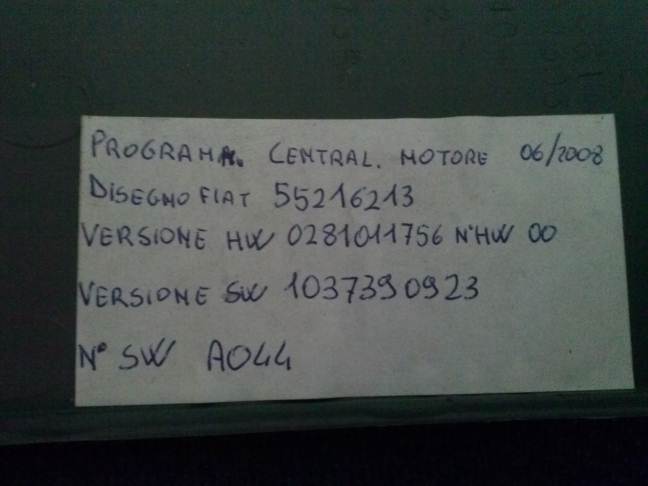 PROGRAMM. CENTRAL. MOTORE 06/2008
DISEGNO FIAT 55216213
VERSIONE HW 0281011756 N°HW 00
VERSIONE SW 1037390923
N° SW A044